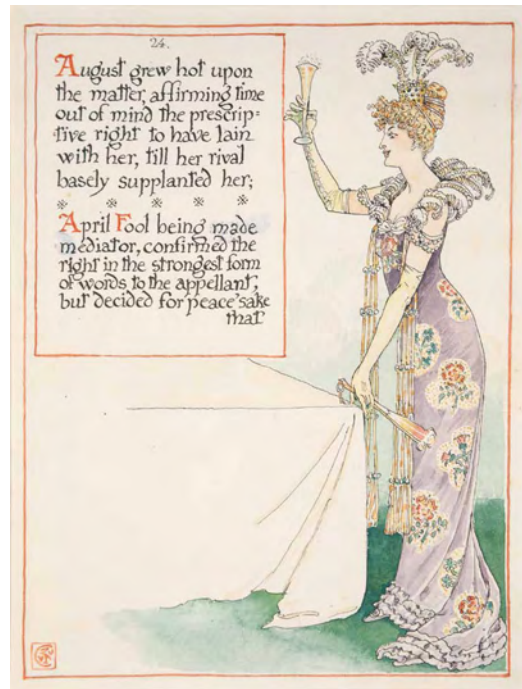 24.
August grew hot upon
the matter, affirming time
out of mind the prescrip=
tive right to have lain
with her, till her rival
basely supplanted her;
April Fool being made
mediator, confirmed the
right in the strongest form
of words, to the appellant,
but decided for peace' sake
that